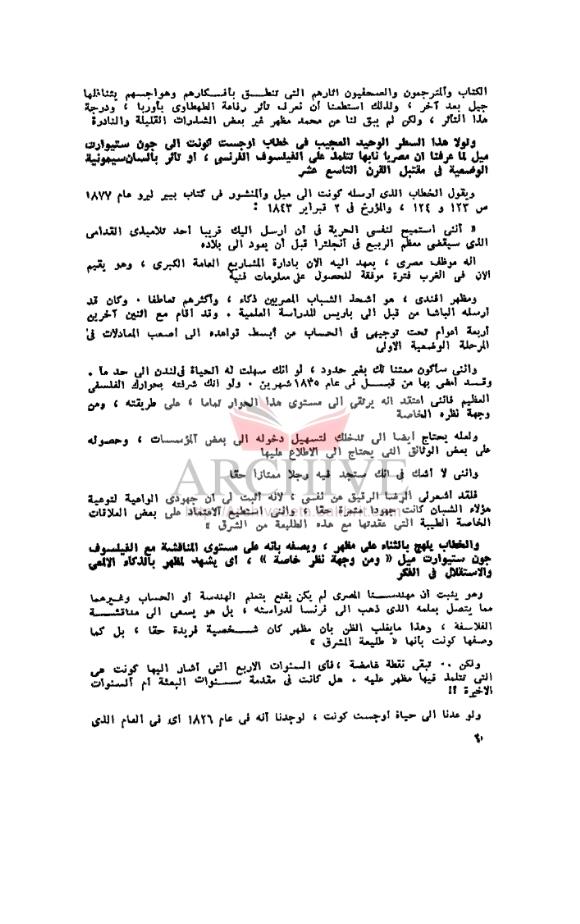 الكتاب والمترجمون والصحفيون آثارهم التى تنطق بأفكارهم وهواجسهم يتناقلها
جيل بعد آخر ، ولذلك استطعنا أن نعرف تأثر رفاعة الطهطاوى بأوربا ، ودرجة
هذا التأثر ، ولكن لم يبق لنا من محمد مظهر غير بعض الشذرات القليلة والنادرة
ولولا هذا السطر الوحيد العجيب فى خطاب أوجست كونت الى جون ستيوارت
ميل لما عرفنا أن مصريا نابها تتلمذ على الفيلسوف الفرنسى ، أو تأثر بالسان سيمونية
الوضعية فى مقتبل القرن التاسع عشر
ويقول الخطاب الذى أرسله كونت الى ميل والمنشور فى كتاب بيير ليرو عام ١٨٧٧
ص ١٢٣ و ١٢٤ ، والمؤرخ فى ٢ فبراير ١٨٤٣ :
« اننى استميح لنفسى الحرية فى أن أرسل اليك قريبا أحد تلاميذى القدامى
الذى سيقضى معظم الربيع فى انجلترا قبل أن يعود الى بلاده
انه موظف مصرى ، يعهد اليه الآن بادارة المشاريع العامة الكبرى ، وهو يقيم
الآن فى الغرب فترة موفقة للحصول على معلومات فنية
ومظهر افندى ، هو أشحذ الشباب المصريين ذكاء ، وأكثرهم تعاطفا . وكان قد
أرسله الباشا من قبل الى باريس للدراسة العلمية . وقد أقام مع اثنين آخرين
أربعة أعوام تحت توجيهى فى الحساب من أبسط قواعده الى أصعب المعادلات فى
المرحلة الوضعية الأولى
واننى سأكون ممتنا لك بغير حدود ، لو أنك سهلت له الحياة فى لندن الى حد ما .
وقد أمضى بها من قبل فى عام ١٨٣٥ شهرين . ولو أنك شرفته بحوارك الفلسفى
العظيم فاننى أعتقد انه يرتقى الى مستوى هذا الحوار تماما ، على طريقته ، ومن
وجهة نظره الخاصة
ولعله يحتاج أيضا الى تدخلك لتسهيل دخوله الى بعض المؤسسات ، وحصوله
على بعض الوثائق التى يحتاج الى الاطلاع عليها
واننى لا أشك فى أنك ستجد فيه رجلا ممتازا حقا
فلقد أشعرنى الرضا الرقيق عن نفسى ، لأنه أثبت لى أن جهودى الواعية لتوعية
هؤلاء الشبان كانت جهودا مثمرة حقا ، واننى أستطيع الاعتماد على بعض العلاقات
الخاصة الطيبة التى عقدتها مع هذه الطليعة من الشرق »
والخطاب يلهج بالثناء على مظهر ، ويصفه بأنه على مستوى المناقشة مع الفيلسوف
جون ستيوارت ميل « ومن وجهة نظر خاصة » ، أى يشهد لمظهر بالذكاء الألمعى
والاستقلال فى الفكر
وهو يثبت أن مهندسنا المصرى لم يكن يقنع بتعلم الهندسة أو الحساب وغيرهما
مما يتصل بعلمه الذى ذهب الى فرنسا لدراسته ، بل هو يسعى الى مناقشة
الفلاسفة ، وهذا مايغلب الظن بأن مظهر كان شخصية فريدة حقا ، بل كما
وصفها كونت بأنها « طليعة المشرق »
ولكن .. تبقى نقطة غامضة ، فأى السنوات الأربع التى أشار اليها كونت هى
التى تتلمذ فيها مظهر عليه . هل كانت فى مقدمة سنوات البعثة أم السنوات
الأخيرة !!
ولو عدنا الى حياة أوجست كونت ، لوجدنا أنه فى عام ١٨٢٦ أى فى العام الذى
ARCHIVE